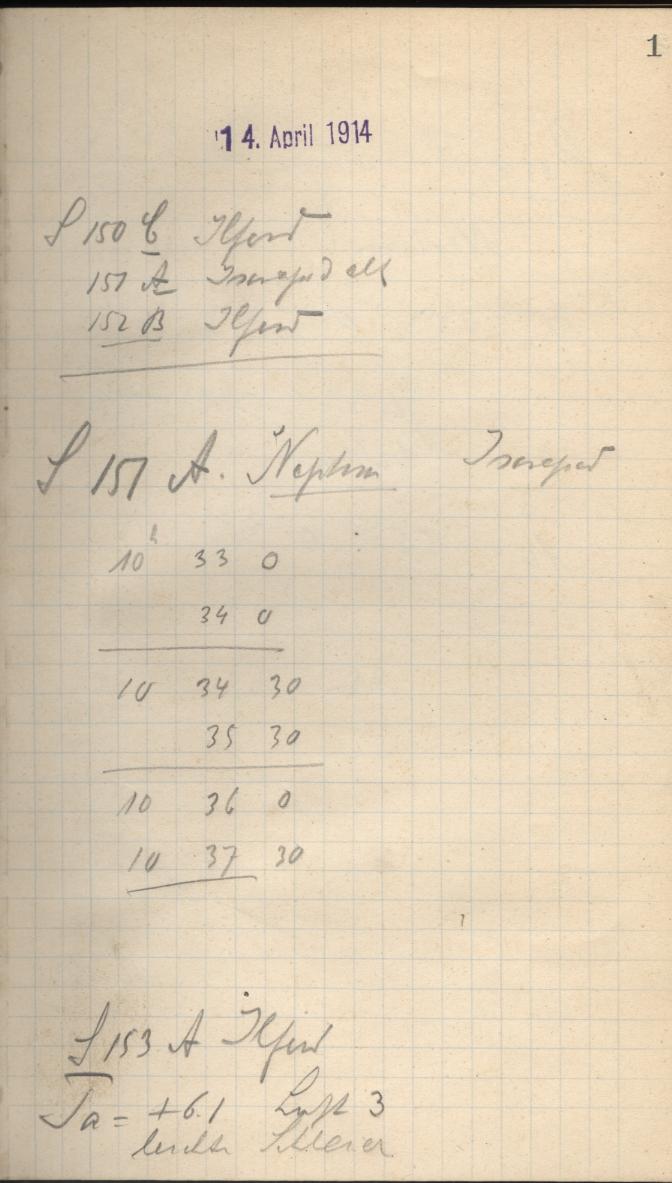 1
14. April 1914
S 150 C Ilford
151 A Isorapid alt
152 B Ilford
S 151 A. Neptun Isorapid
10h 33 0
34 0
10 34 30
35 30
10 36 0
10 37 30
S 153 A Ilford
Ja = +6.1 Luft 3
leichte Schleier